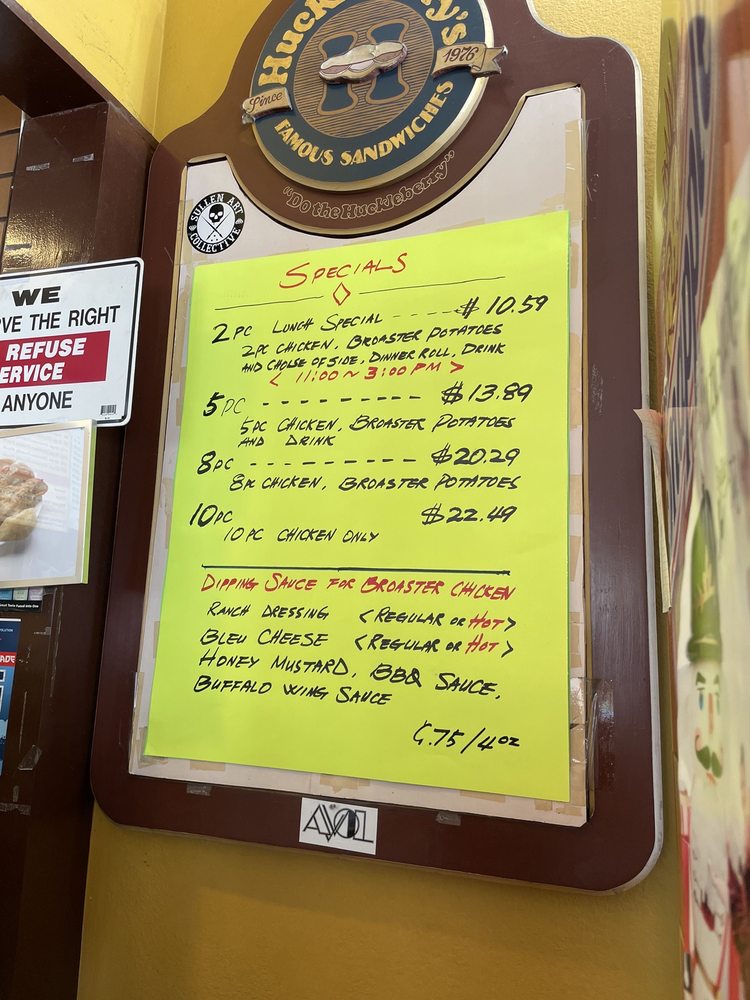 Huck
y's
Since
1976
FAMOUS SANDWICHES
"Do the Huckleberry"
SULLEN ART
COLLECTIVE
WE
VE THE RIGHT
REFUSE
ERVICE
ANYONE
SPECIALS
2PC LUNCH SPECIAL ----- $10.59
2PC CHICKEN, BROASTER POTATOES
AND CHOISE OF SIDE, DINNER ROLL, DRINK
< 11:00 ~ 3:00 PM >
5PC ---------- $13.89
5PC CHICKEN, BROASTER POTATOES
AND DRINK
8PC --------- $20.29
8PC CHICKEN, BROASTER POTATOES
10PC $22.49
10PC CHICKEN ONLY
DIPPING SAUCE FOR BROASTER CHICKEN
RANCH DRESSING <REGULAR OR HOT>
BLEU CHEESE <REGULAR OR HOT>
HONEY MUSTARD, BBQ SAUCE,
BUFFALO WING SAUCE
¢.75/4oz